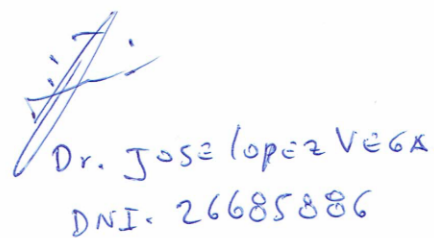 Dr. JOSE lopez VEGA
DNI. 26685886